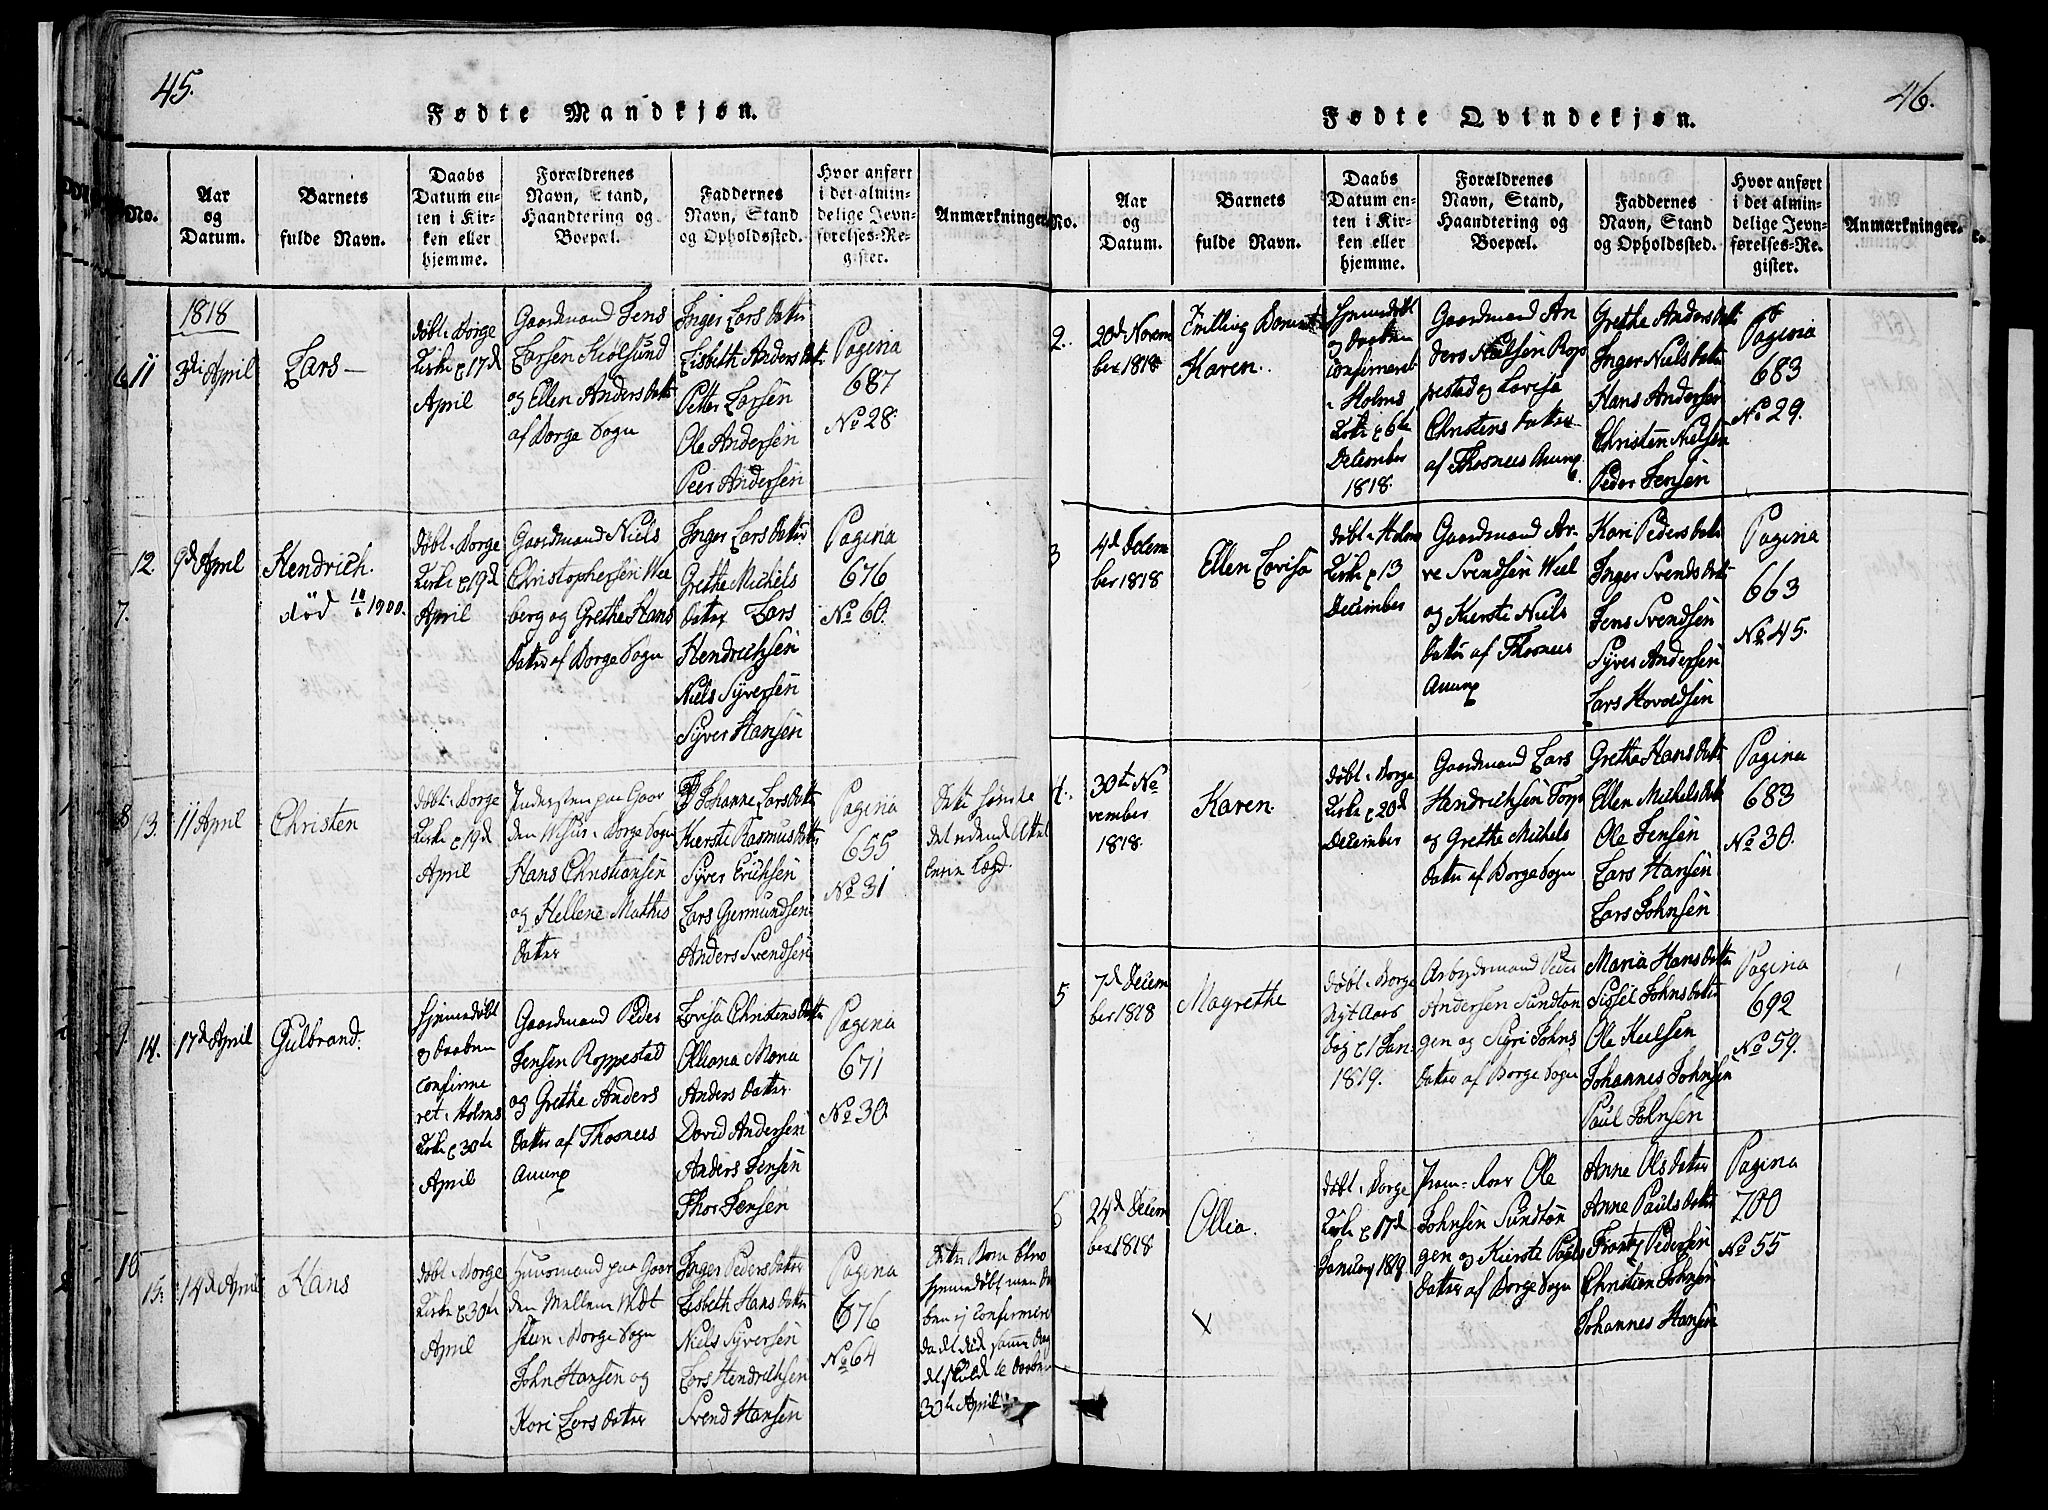 45.
Fødte Mandkjøn.
No.
Aar
og
Datum.
Barnets
fulde Navn.
Daabs
Datum en-
ten i Kir-
ken eller
hjemme.
Forældrenes
Navn, Stand,
Haandtering og
Boepæl.
Faddernes
Navn, Stand
og Opholdssted.
Hvor anført
i det almin-
delige Jevn-
førelses-Re-
gister.
Anmærkninger.
1818
11
3di April
Lars
døbt i Borge
Kirke d 17d
April
Gaardmand Jens
Larsen Kiolsund
og Ellen Anders datter
af Borge Sogn
Inger Lars datter
Lisbeth Anders datter
Petter Larsen
Ole Andersen
Peer Andersen
Pagina
687
No 28
12
9d April
Hendrich.
død 10/6 1900.
7.
døbt i Borge
Kirke d 19d
April
Gaardmand Niels
Christophersen Wee
berg og Grethe Hans
datter af Borge Sogn
Inger Lars datter
Grethe Michels
datter Lars
Hendrichsen
Niels Syversen
Syver Hansen
Pagina
676
No 60.
8
13.
11 April
Christen
døbt i Borge
Kirke d 19d
April
Inderster paa Gaar
den i Borge Sogn
Hans Christiansen
og Hellene Mathis
datter
Johanne Lars datter
Kierste Rasmus datter
Syver Erichsen
Lars Germundsen
Anders Svendsen
Pagina
655
No 31
14.
17d April
Gulbrand.
Hjemmedøbt
og Daaben
confirme
ret i Holms
Kirke d 30te
April
Gaardmand Peder
Jensen Roppestad
og Grethe Anders
datter af Thosnees
Annex
Lovisa Christens datter
Olliana Mona
Anders datter
David Andersen
Anders Jensen
Thor Jensen
Pagina
671
No 30
10
15.
14d April
Hans
døbt i Borge
Kirke d 30te
April
Huusmand paa Gaar
den Mellem
i Borge Sogn
John Hansen og
Kari Lars datter
Inger Peders datter
Lisbeth Hans datter
Niels Syversen
Lars Hendrichsen
Svend Hansen
Pagina
676
No 64
Dette Barn blev
hjemmedøbt men Daa
ben ej confirmeret
da det døde samme Dag
det skulde i Daaben
30te April
46.
Fødte Qvindekjøn.
No.
Aar
og
Datum.
Barnets
fulde Navn.
Daabs
Datum en-
ten i Kir-
ken eller
hjemme.
Forældrenes
Navn, Stand,
Haandtering og
Boepæl.
Faddernes
Navn, Stand
og Opholdssted.
Hvor anført
i det almin-
delige Jevn-
førelses-Re-
gister.
Anmærkninger.
2.
20d Novem
ber 1818
Tvilling Barnet
Karen.
Hjemmedøbt
og Daaben
confirmeret
i Holms
Kirke d 6te
December
1818.
Gaardmand An
ders Nielsen Rop
pestad og Lovisa
Christens datter
af Thosnees Annex.
Grethe Anders datter
Inger Niels datter
Hans Andersen
Christen Nielsen
Peder Jensen
Pagina
683
No 29.
3
4d Decem
ber 1818
Ellen Lovisa
døbt i Holms
Kirke d 13
December
Gaardmand Ar
ve Svendsen Weel
og Kierste Niels
datter af Thosnees
Annex
Kari Peders datter
Inger Svends datter
Jens Svendsen
Syver Andersen
Lars Havoldsen
Pagina
663
No 45.
4.
30te No
vember
1818.
Karen.
døbt i Borge
Kirke d 20d
December
Gaardmand Lars
Hendrichsen Torp
og Grethe Michels
datter af Borge Sogn
Grethe Hans datter
Ellen Michels datter
Ole Jensen
Lars Hansen
Lars Johnsen
Pagina
683
No 30.
5
7d Decem
ber 1818
Magrethe
døbt i Borge
Nyt Aars
Dag d 1 Jan-
1819.
Arbejdsmand Peder
Andersen Sundtan
gen og Sigri Johns
datter af Borge Sogn
Maria Hans datter
Sissel Johns datter
Ole Keilsen
Johannes Johnsen
Paul Johnsen
Pagina
692
No 59.
6
24d Decem
ber 1818
Ollia.
X
døbt i Borge
Kirke d 17d
Januarij 1819
Pram-Roer Ole
Johnsen Sundtan
gen og Kierste Pauls
datter af Borge Sogn
Anne Ols datter
Anne Pauls datter
Frantz Pedersen
Christian Johnsen
Johannes Hansen
Pagina
700
No 55